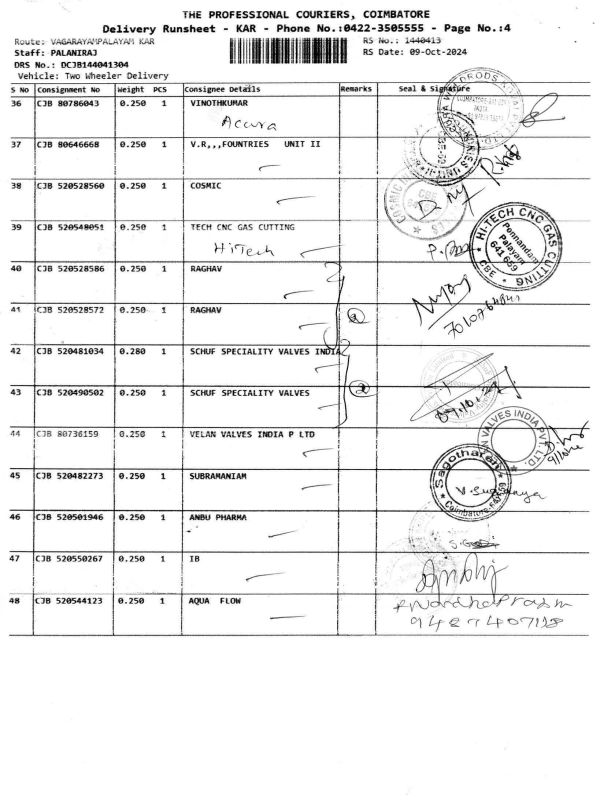 THE PROFESSIONAL COURIERS, COIMBATORE
Delivery Runsheet - KAR - Phone No.:0422-3505555 - Page No.:4
Route: VAGARAYAMPALAYAM KAR
RS No.: 1440413
Staff: PALANIRAJ
RS Date: 09-Oct-2024
DRS No.: DCJB144041304
Vehicle: Two Wheeler Delivery
S No Consignment No Weight PCS Consignee Details Remarks Seal & Signature
36 CJB 80786043 0.250 1 VINOTHKUMAR
Accura
37 CJB 80646668 0.250 1 V.R,,,FOUNTRIES UNIT II
38 CJB 520528560 0.250 1 COSMIC
39 CJB 520548051 0.250 1 TECH CNC GAS CUTTING
HiTech
HI-TECH CNC GAS CUTTING
Ponnandam
Palayam
641 659
CBE
40 CJB 520528586 0.250 1 RAGHAV
41 CJB 520528572 0.250 1 RAGHAV
42 CJB 520481034 0.280 1 SCHUF SPECIALITY VALVES INDIA
43 CJB 520490502 0.250 1 SCHUF SPECIALITY VALVES
44 CJB 80736159 0.250 1 VELAN VALVES INDIA P LTD
VALVES INDIA PVT. LTD.
45 CJB 520482273 0.250 1 SUBRAMANIAM
Sagotharan
46 CJB 520501946 0.250 1 ANBU PHARMA
47 CJB 520550267 0.250 1 IB
48 CJB 520544123 0.250 1 AQUA FLOW